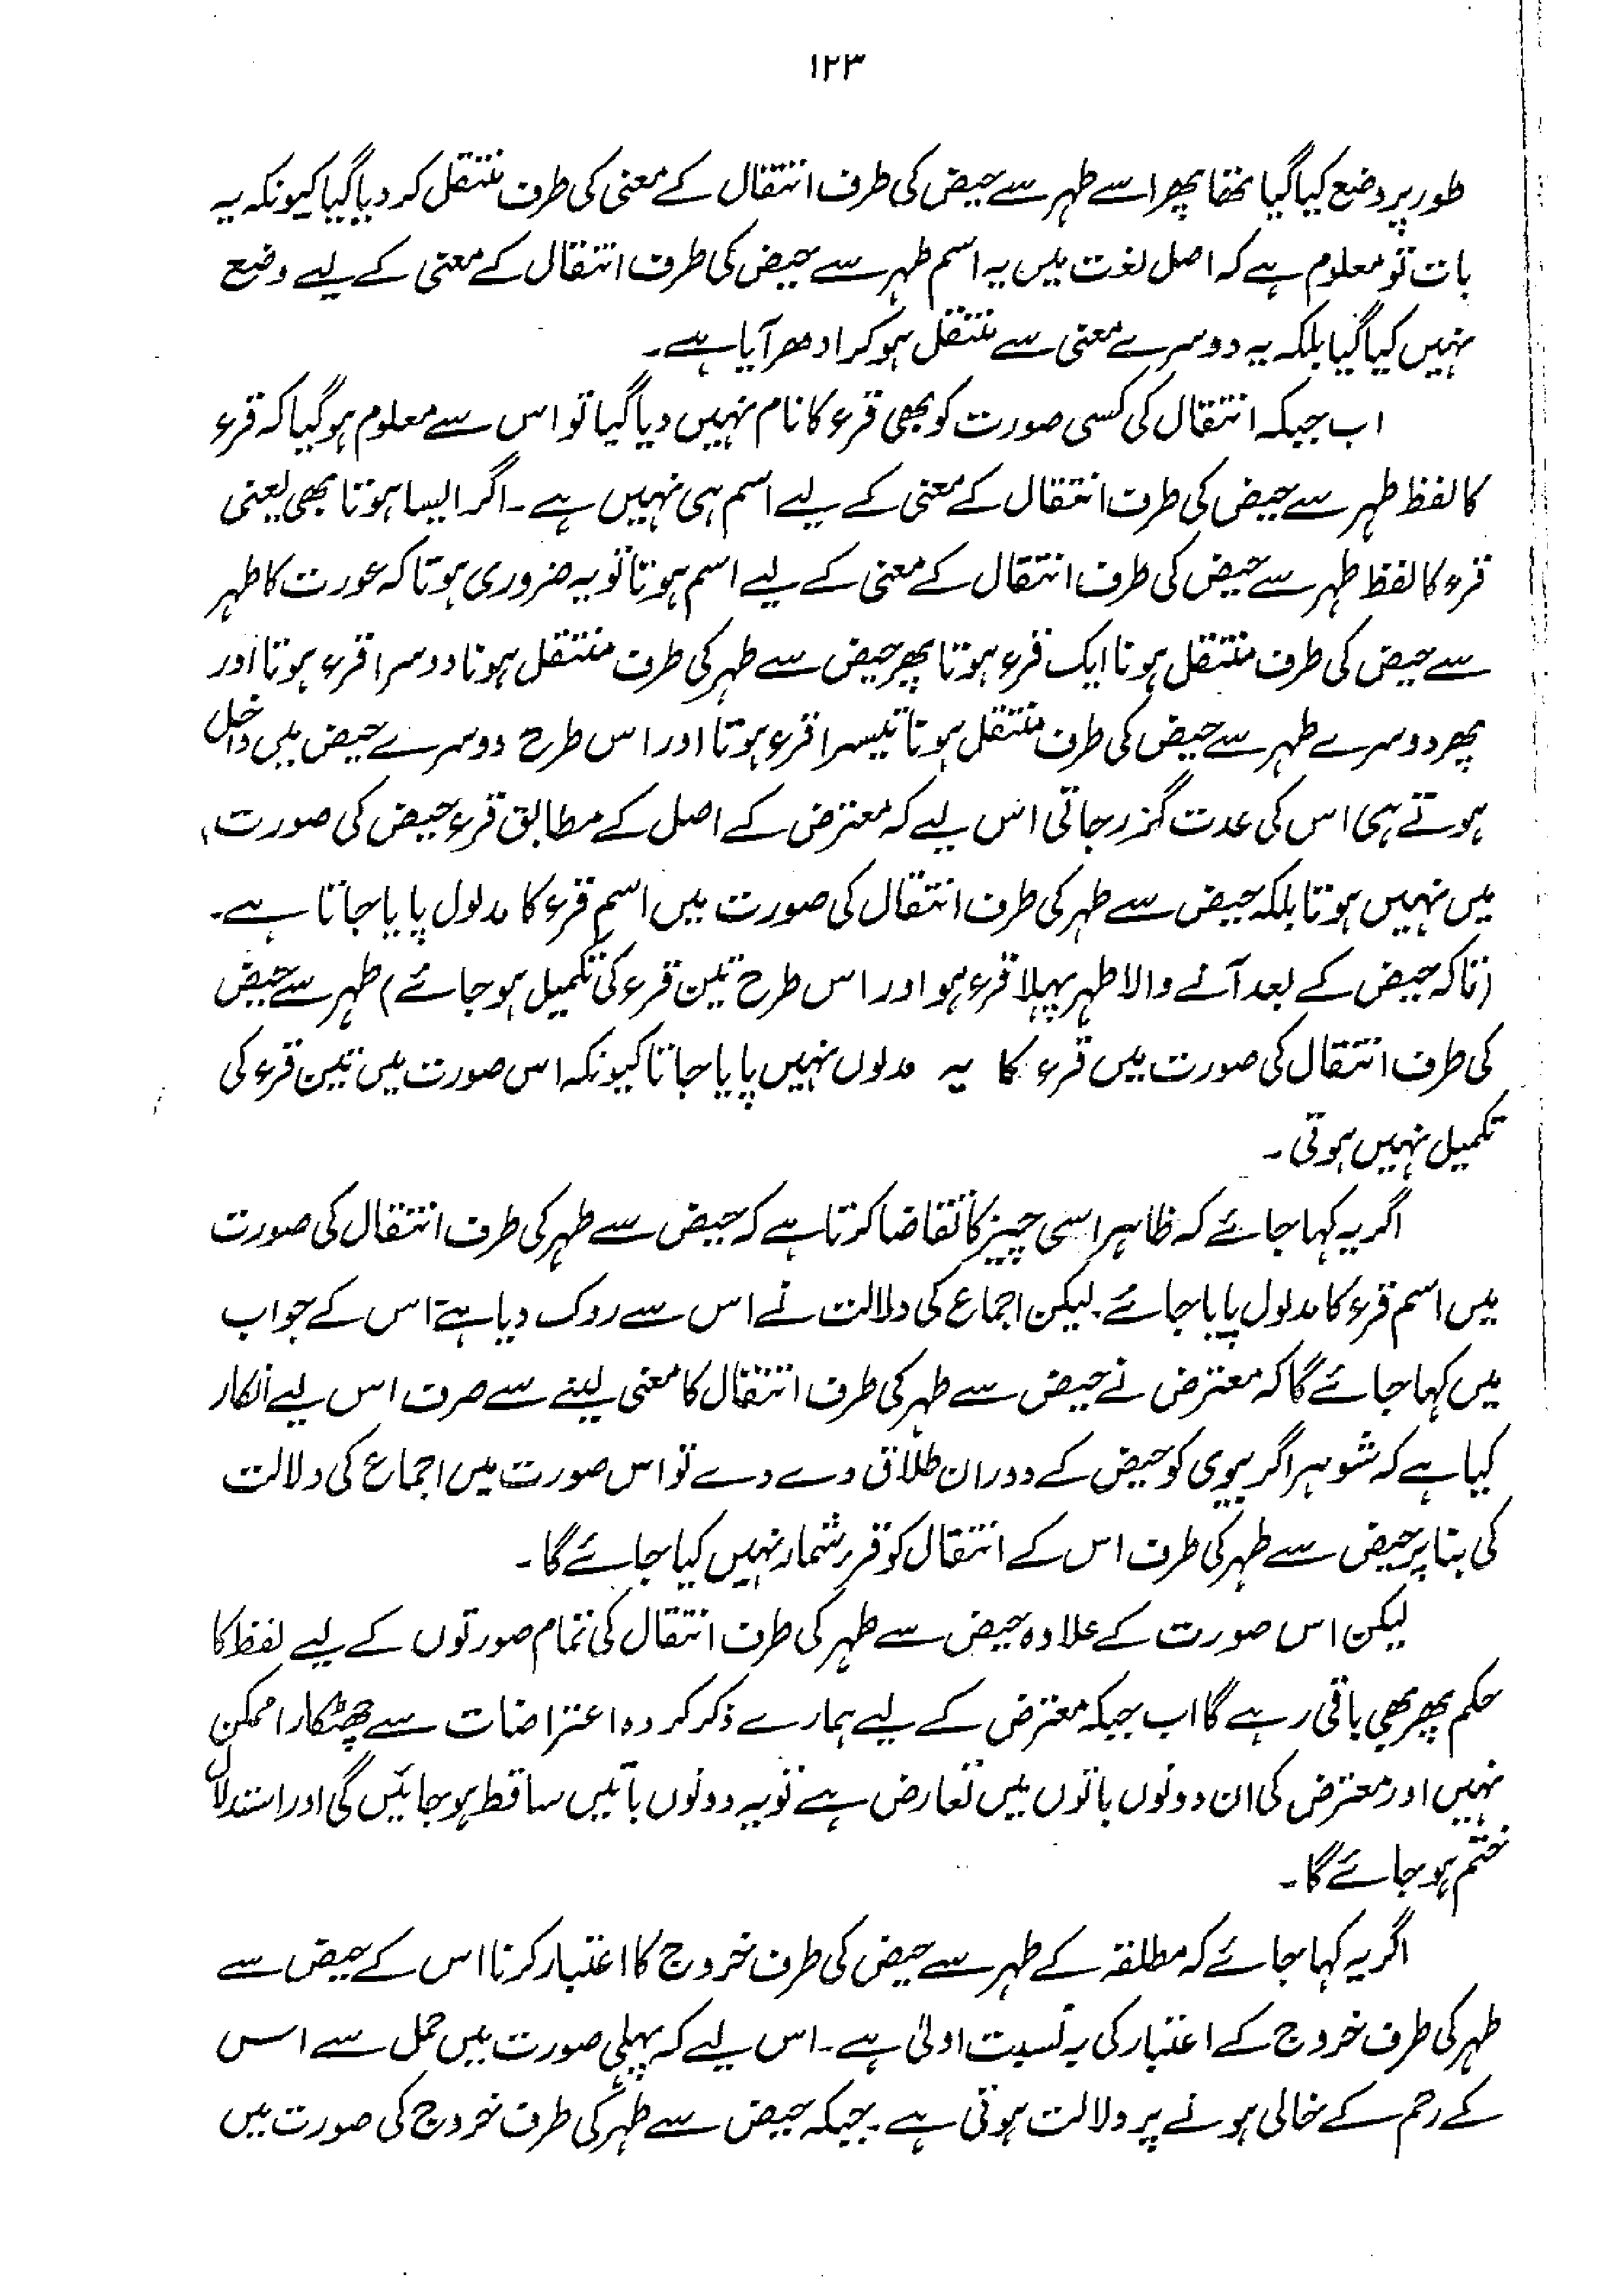 ۱۲۳
طور پر وضع کیا گیا تھا پھر اسے طہر سے حیض کی طرف انتقال کے معنی کی طرف منتقل کر دیا گیا کیونکہ یہ
بات تو معلوم ہے کہ اصل لغت میں یہ اسم طہر سے حیض کی طرف انتقال کے معنی کے لیے وضع
نہیں کیا گیا بلکہ یہ دوسرے معنی سے منتقل ہو کر ادھر آیا ہے۔
اب جبکہ انتقال کی کسی صورت کو بھی قرء کا نام نہیں دیا گیا تو اس سے معلوم ہو گیا کہ قرء
کا لفظ طہر سے حیض کی طرف انتقال کے معنی کے لیے اسم ہی نہیں ہے۔ اگر ایسا ہوتا بھی یعنی
قرء کا لفظ طہر سے حیض کی طرف انتقال کے معنی کے لیے اسم ہوتا تو یہ ضروری ہوتا کہ عورت کا طہر
سے حیض کی طرف منتقل ہونا ایک قرء ہوتا پھر حیض سے طہر کی طرف منتقل ہونا دوسرا قرء ہوتا اور
پھر دوسرے طہر سے حیض کی طرف منتقل ہونا تیسرا قرء ہوتا اور اس طرح دوسرے حیض میں داخل
ہوتے ہی اس کی عدت گزر جاتی اس لیے کہ معترض کے اصل کے مطابق قرء حیض کی صورت
میں نہیں ہوتا بلکہ حیض سے طہر کی طرف انتقال کی صورت میں اسم قرء کا مدلول پایا جاتا ہے۔
(تاکہ حیض کے بعد آنے والا طہر پہلا قرء ہو اور اس طرح تین قرء کی تکمیل ہو جائے) طہر سے حیض
کی طرف انتقال کی صورت میں قرء کا یہ مدلول نہیں پایا جاتا کیونکہ اس صورت میں تین قرء کی
تکمیل نہیں ہوتی۔
اگر یہ کہا جائے کہ ظاہر اسی چیز کا تقاضا کرتا ہے کہ حیض سے طہر کی طرف انتقال کی صورت
میں اسم قرء کا مدلول پایا جائے۔ لیکن اجماع کی دلالت نے اس سے روک دیا ہے تو اس کے جواب
میں کہا جائے گا کہ معترض نے حیض سے طہر کی طرف انتقال کا معنی لینے سے صرف اس لیے انکار
کیا ہے کہ شوہر اگر بیوی کو حیض کے دوران طلاق دے دے تو اس صورت میں اجماع کی دلالت
کی بنا پر حیض سے طہر کی طرف اس کے انتقال کو قرء شمار نہیں کیا جائے گا۔
لیکن اس صورت کے علاوہ حیض سے طہر کی طرف انتقال کی تمام صورتوں کے لیے لفظ کا
حکم پھر بھی باقی رہے گا اب جبکہ معترض کے لیے ہمارے ذکر کردہ اعتراضات سے چھٹکارا ممکن
نہیں اور معترض کی ان دونوں باتوں میں تعارض ہے تو یہ دونوں باتیں ساقط ہو جائیں گی اور استدلال
ختم ہو جائے گا۔
اگر یہ کہا جائے کہ مطلقہ کے طہر سے حیض کی طرف خروج کا اعتبار کرنا اس کے حیض سے
طہر کی طرف خروج کے اعتبار کی بہ نسبت اولیٰ ہے۔ اس لیے کہ پہلی صورت میں حمل سے اس
کے رحم کے خالی ہونے پر دلالت ہوتی ہے۔ جبکہ حیض سے طہر کی طرف خروج کی صورت میں